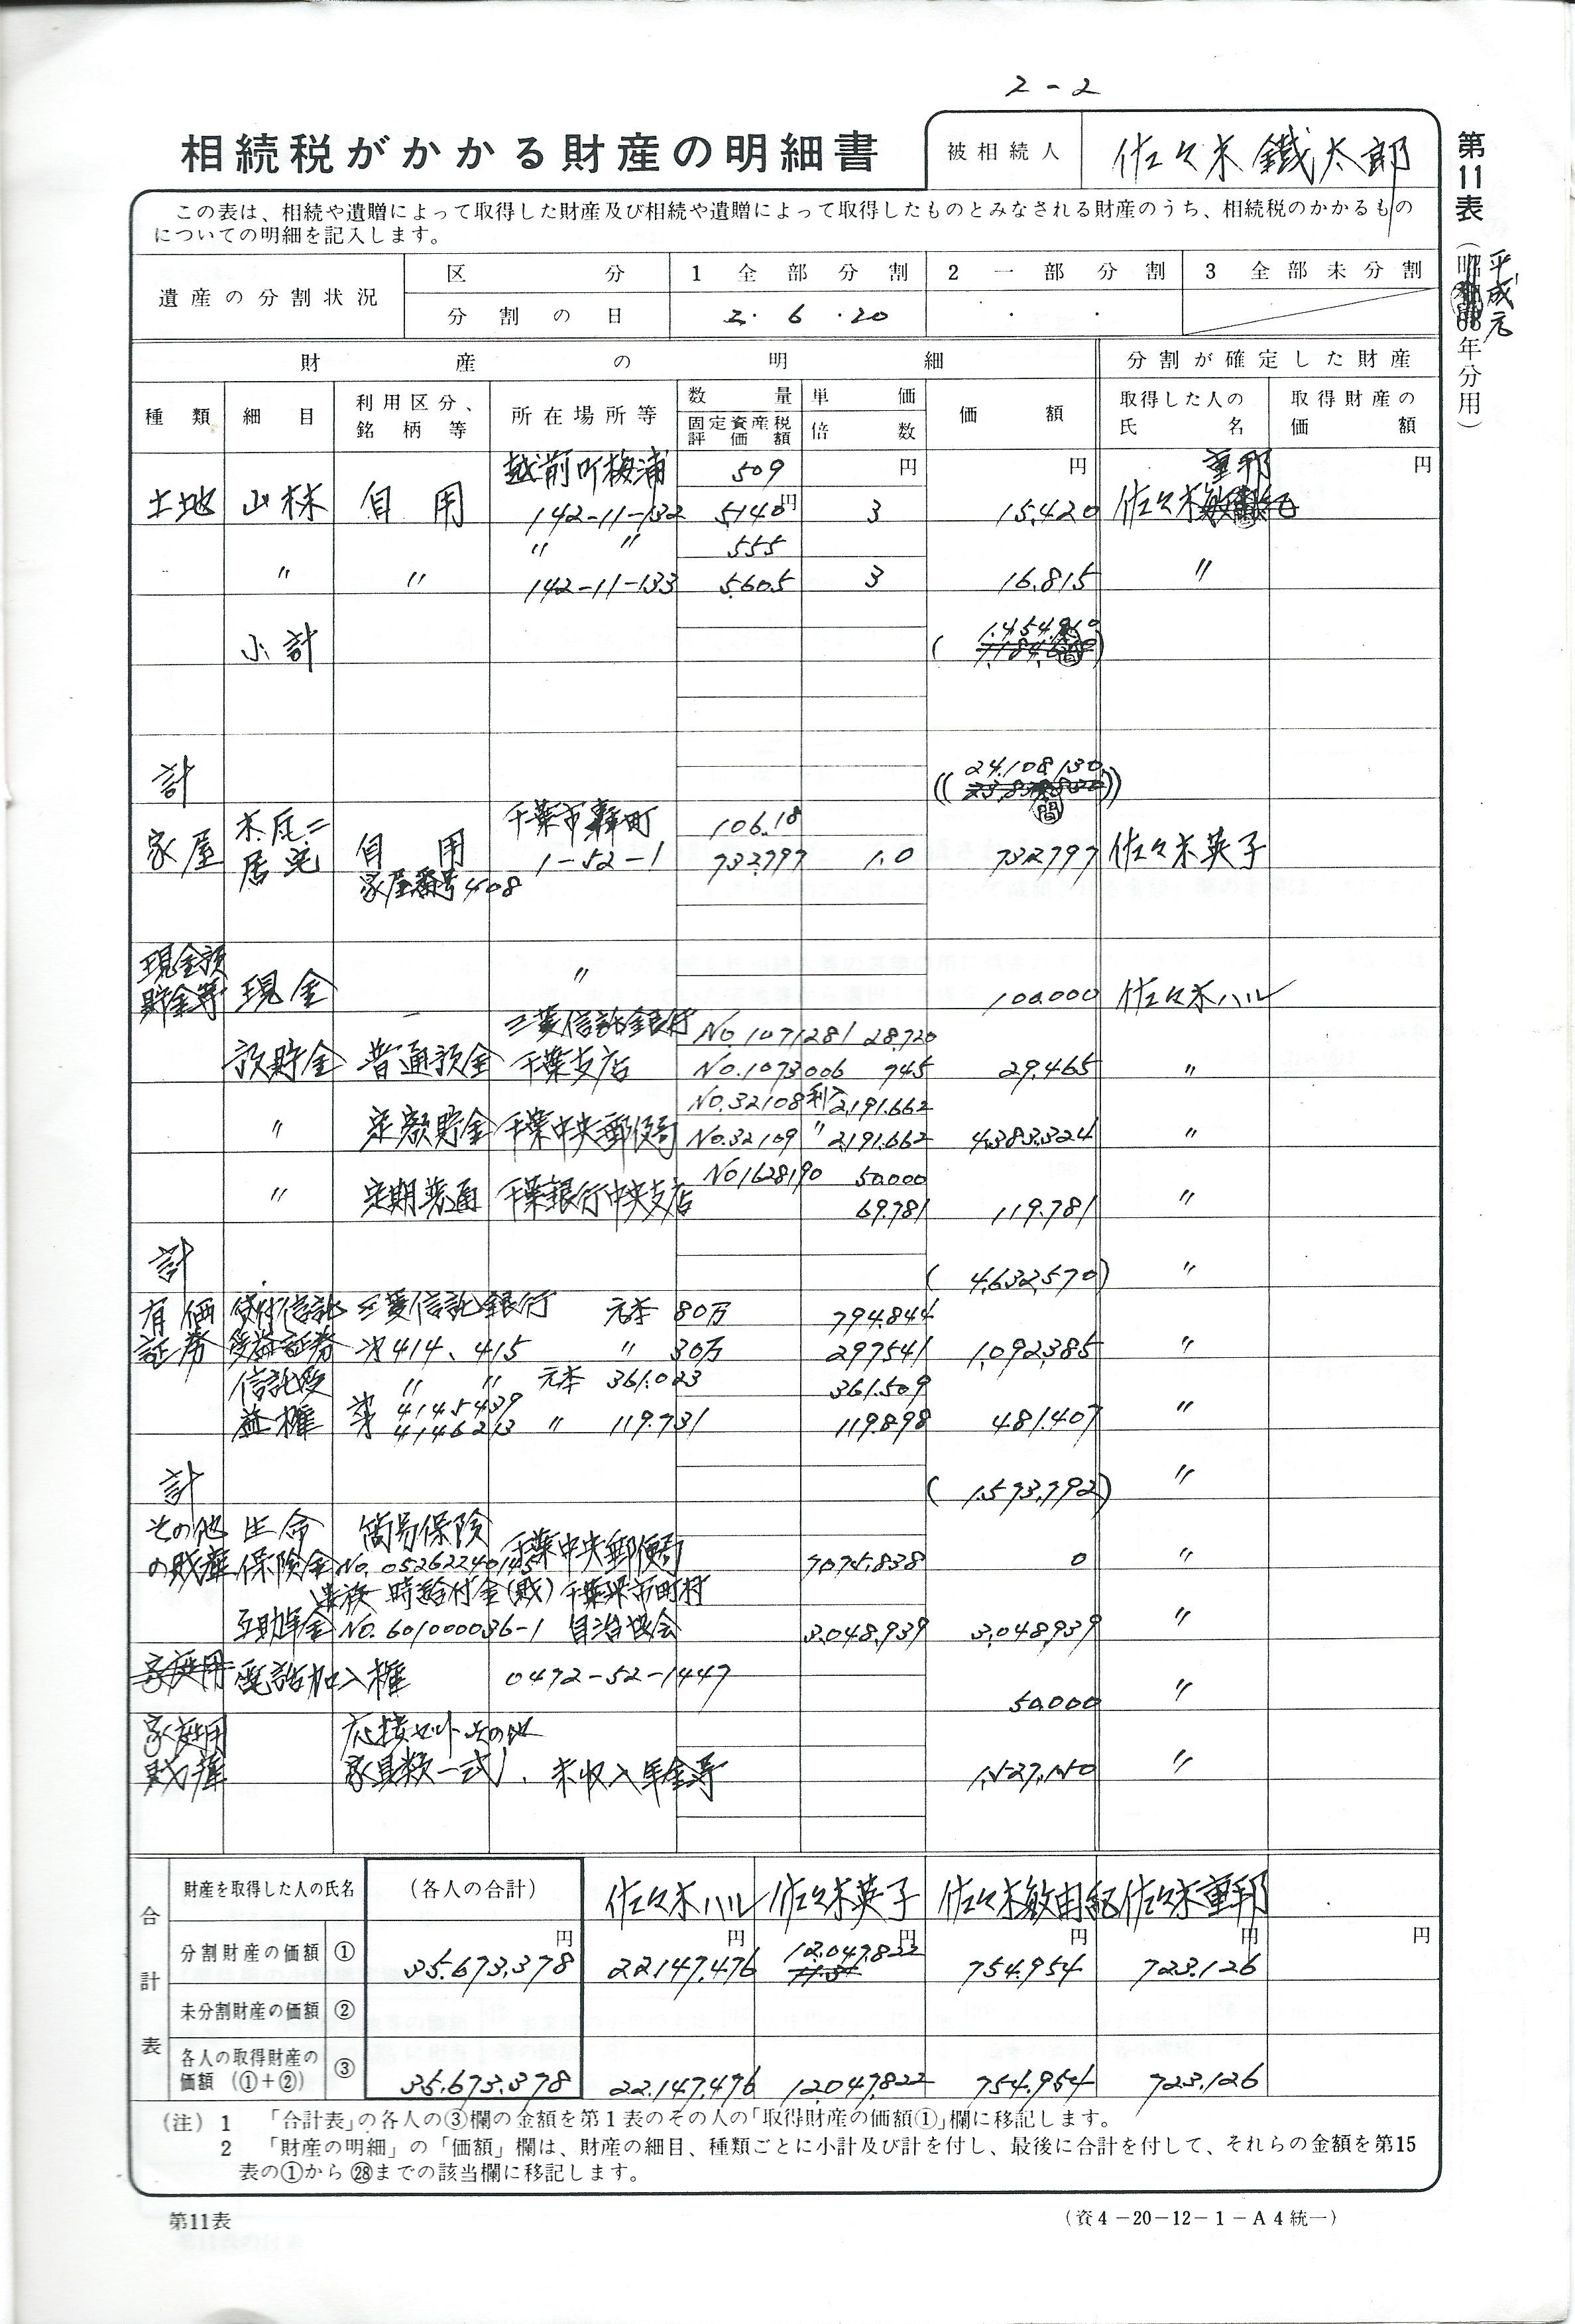 2-2
相続税がかかる財産の明細書
被相続人 佐々木鐵太郎
第11表(平成元年分用)
この表は、相続や遺贈によって取得した財産及び相続や遺贈によって取得したものとみなされる財産のうち、相続税のかかるもの
についての明細を記入します。
遺産の分割状況 区分 1 全部分割 2 一部分割 3 全部未分割
分割の日 2・6・20 ・ ・
財産の明細 分割が確定した財産
種類 細目 利用区分、銘柄等 所在場所等 数量 単価 価額 取得した人の氏名 取得財産の価額
固定資産税評価額 倍数
越前町梅浦 509 円 円 重邦 円
土地 山林 自用 142-11-132 5,140円 3 15,420 佐々木
〃 〃 555
〃 〃 142-11-133 5,605 3 16,815 〃
小計
計 ((24,108,130))
家屋 木瓦二居宅 自用 千葉市轟町 106.18
1-52-1 732,797 1.0 732,797 佐々木英子
家屋番号408
現金預貯金等 現金 〃 100,000 佐々木ハル
三菱信託銀行 No.1071281 28,720
預貯金 普通預金 千葉支店 No.1073006 745 29,465 〃
No.32108 利入 2,191,662
〃 定額貯金 千葉中央郵便局 No.32109 〃 2,191,662 4,383,324 〃
No1628190 50,000
〃 定期普通 千葉銀行中央支店 69,781 119,781 〃
計 (4,632,570) 〃
有価 貸付信託 三菱信託銀行 元本 80万 794,844
証券 受益証券 オ414、415 〃 30万 297,541 1,092,385 〃
信託受 〃 〃 元本 361,023 361,509
益権 オ4145439
オ4146213 〃 119,731 119,898 481,407 〃
計 (1,573,792) 〃
その他 生命 簡易保険 千葉中央郵便局
の財産 保険金 No.05262240145 7,075,838 0 〃
遺族一時給付金(財)千葉県市町村
互助年金 No.601000036-1 自治協会 3,048,939 3,048,939 〃
家庭用 電話加入権 0472-52-1447 50,000 〃
家庭用 応接セットその他
財産 家具類一式、未収入年金等 1,527,150 〃
合計表
財産を取得した人の氏名 (各人の合計) 佐々木ハル 佐々木英子 佐々木敏由紀 佐々木重邦
分割財産の価額 ① 円 35,673,378 円 22,147,476 円 12,047,822 円 754,954 円 723,126 円
未分割財産の価額 ②
各人の取得財産の価額 (①+②) ③ 35,673,378 22,147,476 12,047,822 754,954 723,126
(注) 1 「合計表」の各人の③欄の金額を第1表のその人の「取得財産の価額①」欄に移記します。
2 「財産の明細」の「価額」欄は、財産の細目、種類ごとに小計及び計を付し、最後に合計を付して、それらの金額を第15
表の①から㉘までの該当欄に移記します。
第11表 (資4-20-12-1-A4統一)